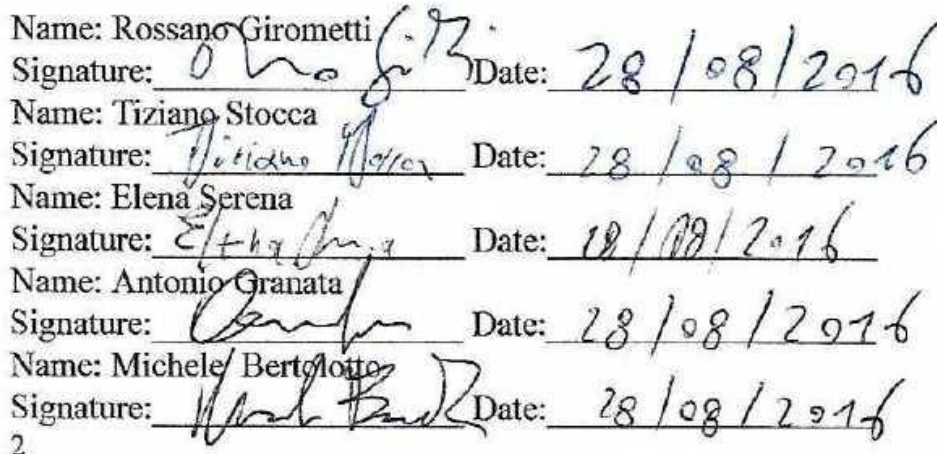 Name: Rossano Girometti
Signature: Date: 28/08/2016
Name: Tiziano Stocca
Signature: Tiziano Date: 28/08/2016
Name: Elena Serena
Signature: Date: 28/08/2016
Name: Antonio Granata
Signature: Date: 28/08/2016
Name: Michele Bertolotto
Signature: Date: 28/08/2016
2